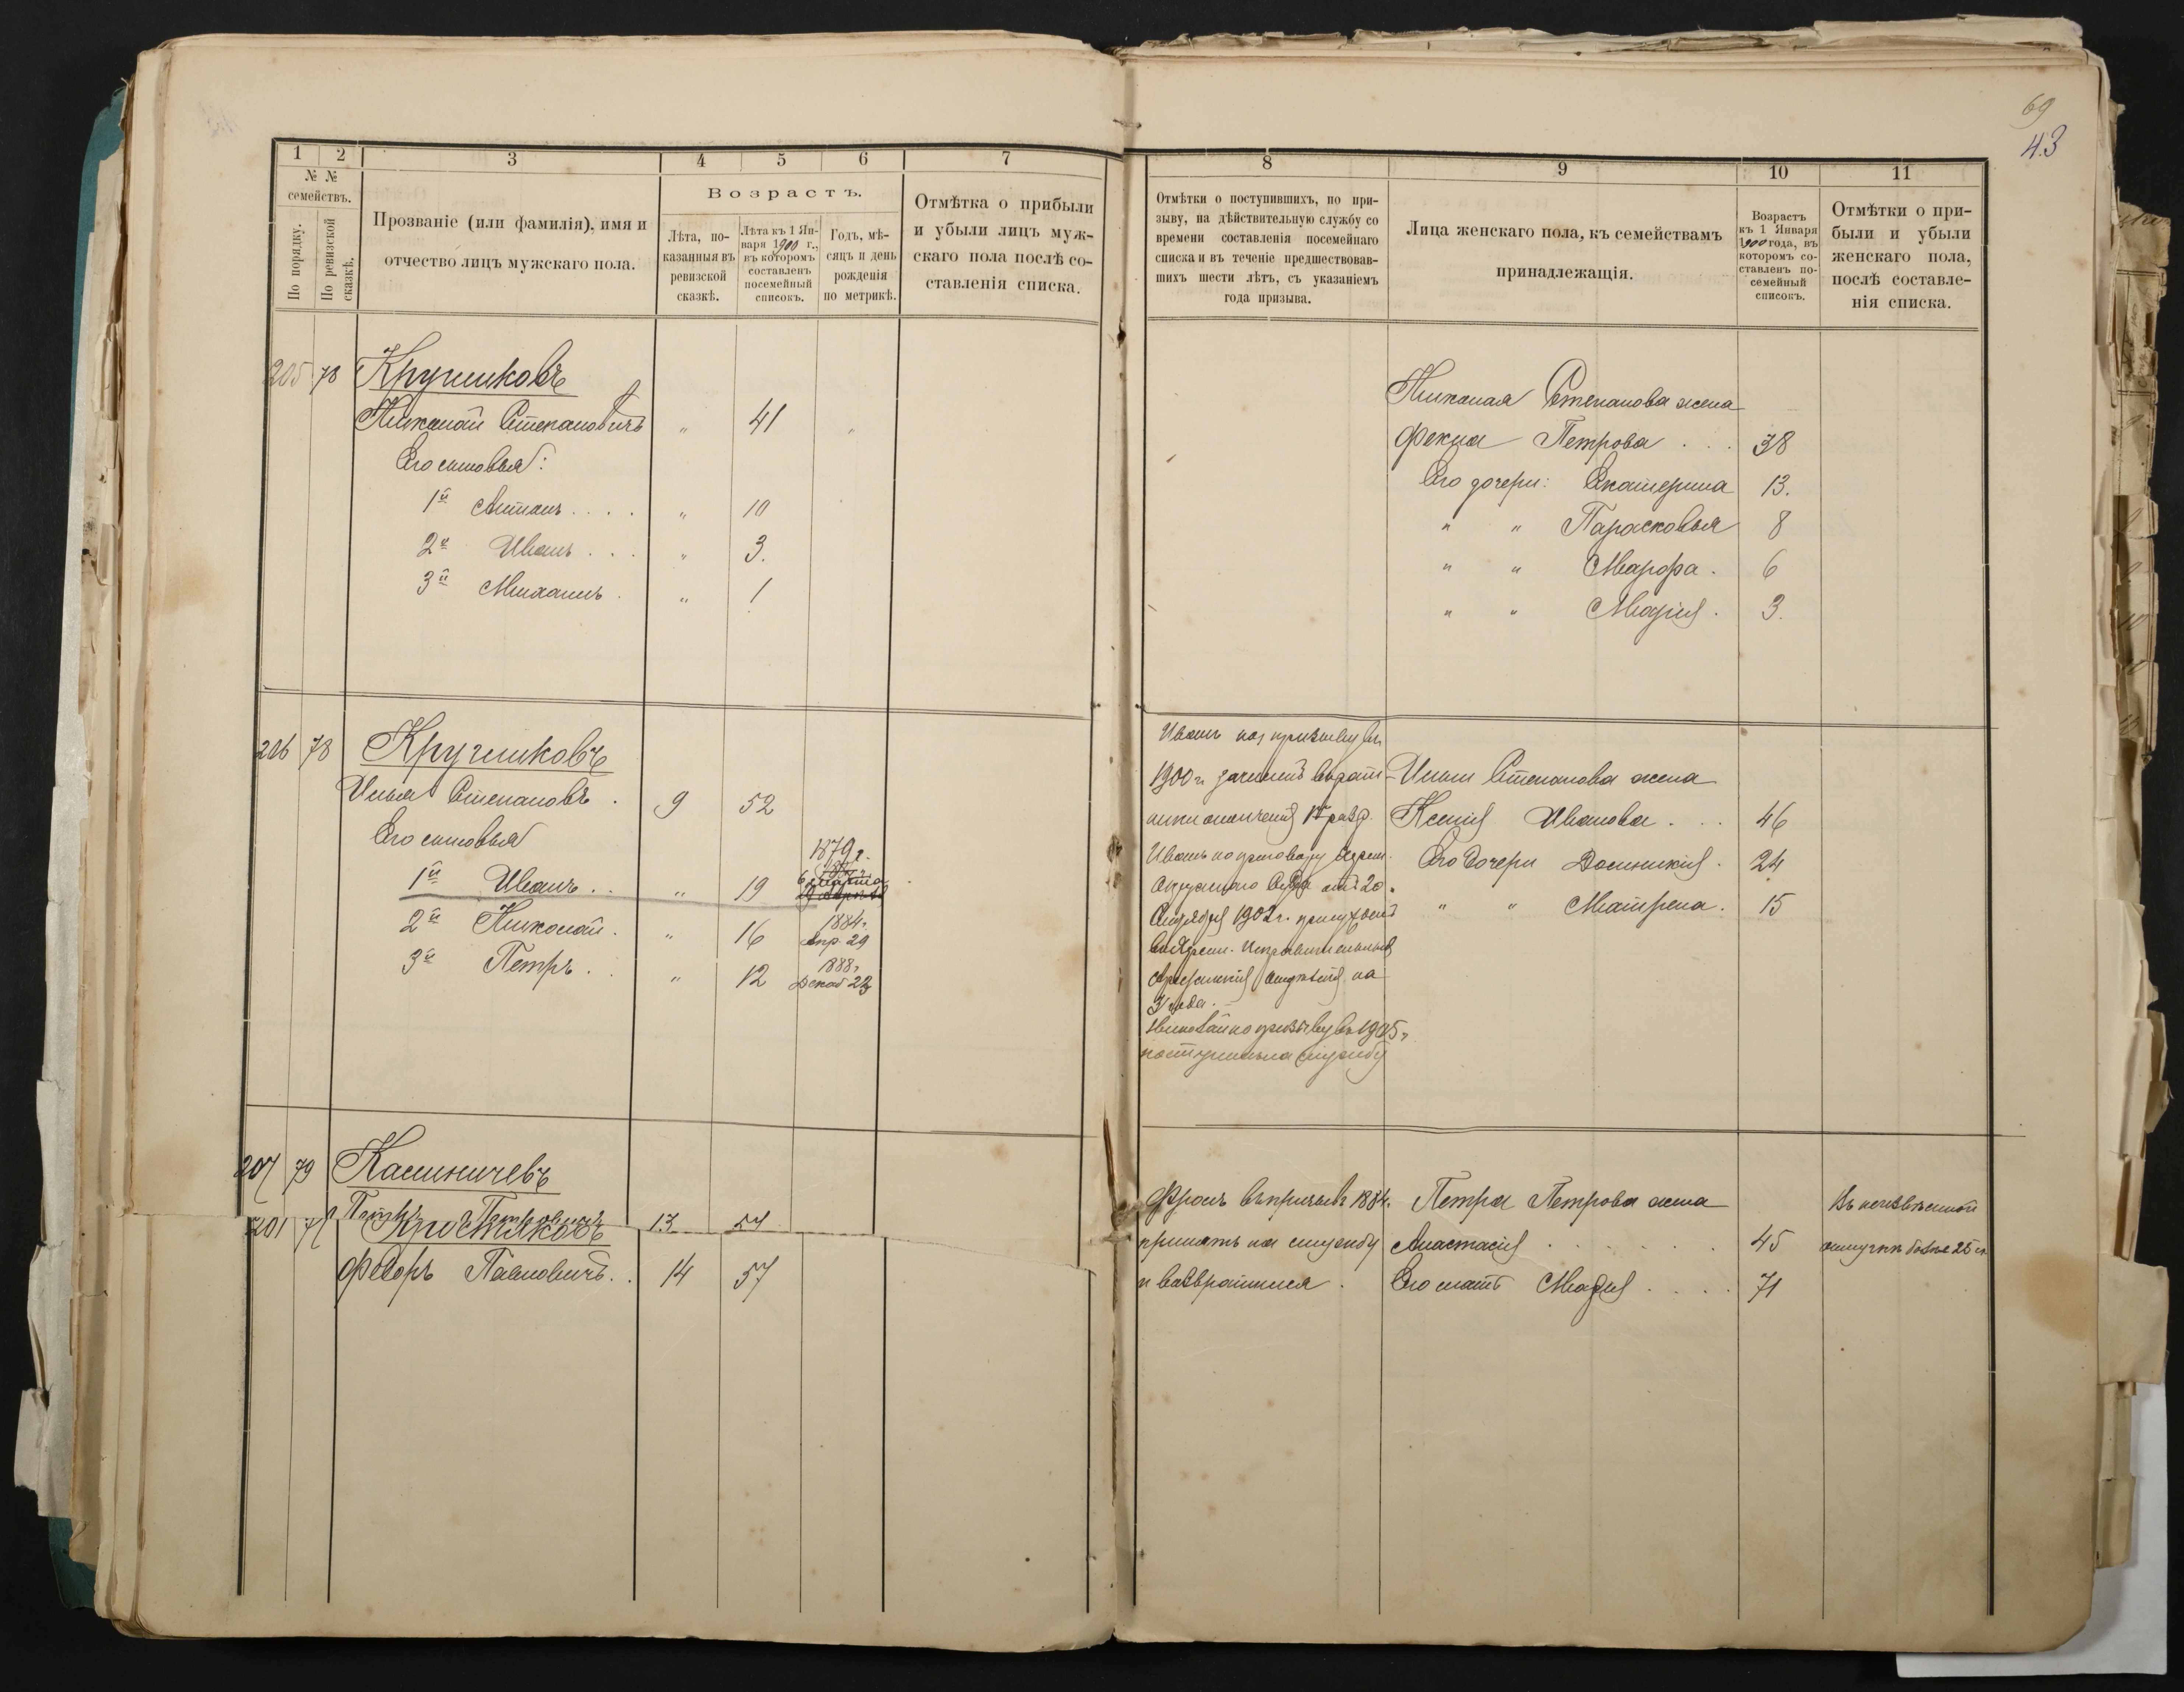 69
43
1 2 3 4 5 6 7
№ №
семействъ.
По порядку.
По ревизской сказкѣ.
Прозваніе (или фамилія), имя и
отчество лицъ мужскаго пола.
Возрастъ.
Лѣта, по-
казанныя въ
ревизской
сказкѣ.
Лѣта къ 1 Ян-
варя 1900 г.,
въ которомъ
составленъ
посемейный
списокъ.
Годъ, мѣ-
сяцъ и день
рожденія
по метрикѣ.
Отмѣтка о прибыли
и убыли лицъ муж-
скаго пола послѣ со-
ставленія списка.
8 9 10 11
Отмѣтки о поступившихъ, по при-
зыву, на дѣйствительную службу со
времени составленія посемейнаго
списка и въ теченіе предшествовав-
шихъ шести лѣтъ, съ указаніемъ
года призыва.
Лица женскаго пола, къ семействамъ
принадлежащія.
Возрастъ
къ 1 Января
1900 года, въ
которомъ со-
ставленъ по-
семейный
списокъ.
Отмѣтки о при-
были и убыли
женскаго пола,
послѣ составле-
нія списка.
205 78
Николай Степановичъ " 41 "
Его сыновья:
1й Антонъ . . . . " 10
2й Иванъ . . . " 3.
3й Михаилъ . " 1
Николая Степанова жена
Фекла Петрова . . . 38
Его дочери: Екатерина 13.
" " Парасковья 8
" " Марфа . 6
" " Марія . 3.
206 78
Илья Степановъ . 9 52
Его сыновья
1й Иванъ . . " 19 1879 г.
6 марта
2й Николай . " 16 1884 г.
Апр. 29
3й Петръ . . " 12 1888 г.
Декаб 23
Иванъ по призыву въ
1900 г. зачисленъ въ рат-
ники ополченія 1го разр.
Иванъ по приговору
Окружного Суда отъ 20
1902 г.
Исправительныя
Арестантскія отдѣленія на
3 года.
Николай по призыву въ 1905 г.
поступилъ на службу
Ильи Степанова жена
Ксенія Иванова . . . 46
Его дочери Домникія . 24
" " Матрена . 15
207 79 Калиничевъ
Петръ Петровичъ 13 54
201 77
Федоръ Павловичъ . . 14 57
Фролъ въ призывъ 1884 г.
принятъ на службу
и возвратился .
Петра Петрова жена
Анастасія . . . . . . 45
Его мать Марія . . . . 71
Въ неизвѣстной
отлучкѣ болѣе 25 л.